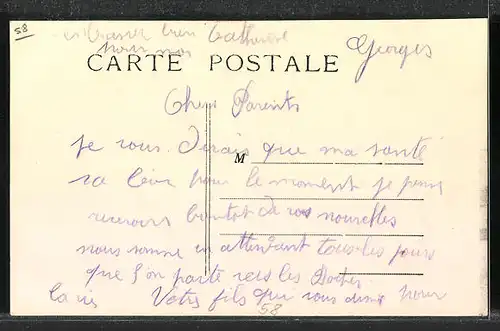 58
embrasser bien Catherine
pour moi
Georges
CARTE POSTALE
Chers Parents
je vous dirais que ma santé
M
va bien pour le moment je pense
recevoir bientot de vos nouvelles
nous somme en attendant tous les jours
que l'on parte vers les Boches
Votre fils qui vous aime pour
la vie
58